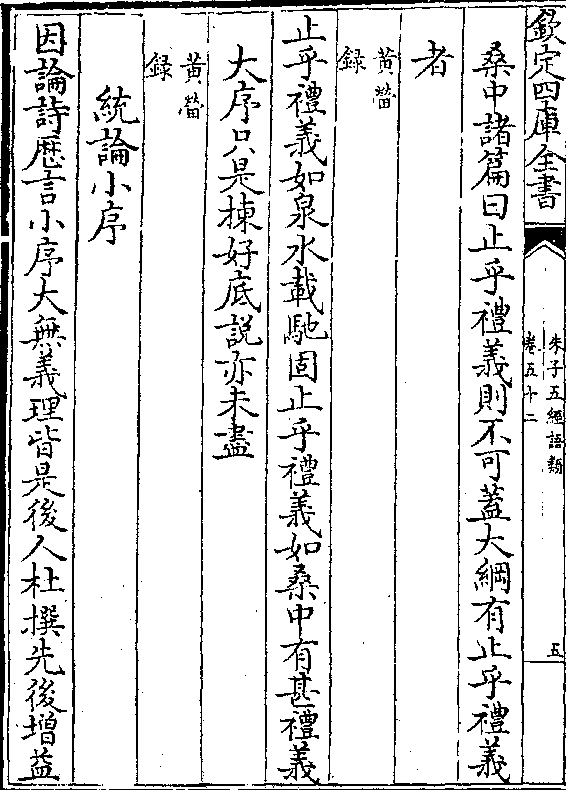 欽定四庫全書
朱子五經語類
卷五十二
五
桑中諸篇曰止乎禮義則不可蓋大綱有止乎禮義
者
黄㽦
録
止乎禮義如泉水載馳固止乎禮義如桑中有甚禮義
大序只是揀好底說亦未盡
黄㽦
録
統論小序
因論詩歴言小序大無義理皆是後人杜撰先後增益